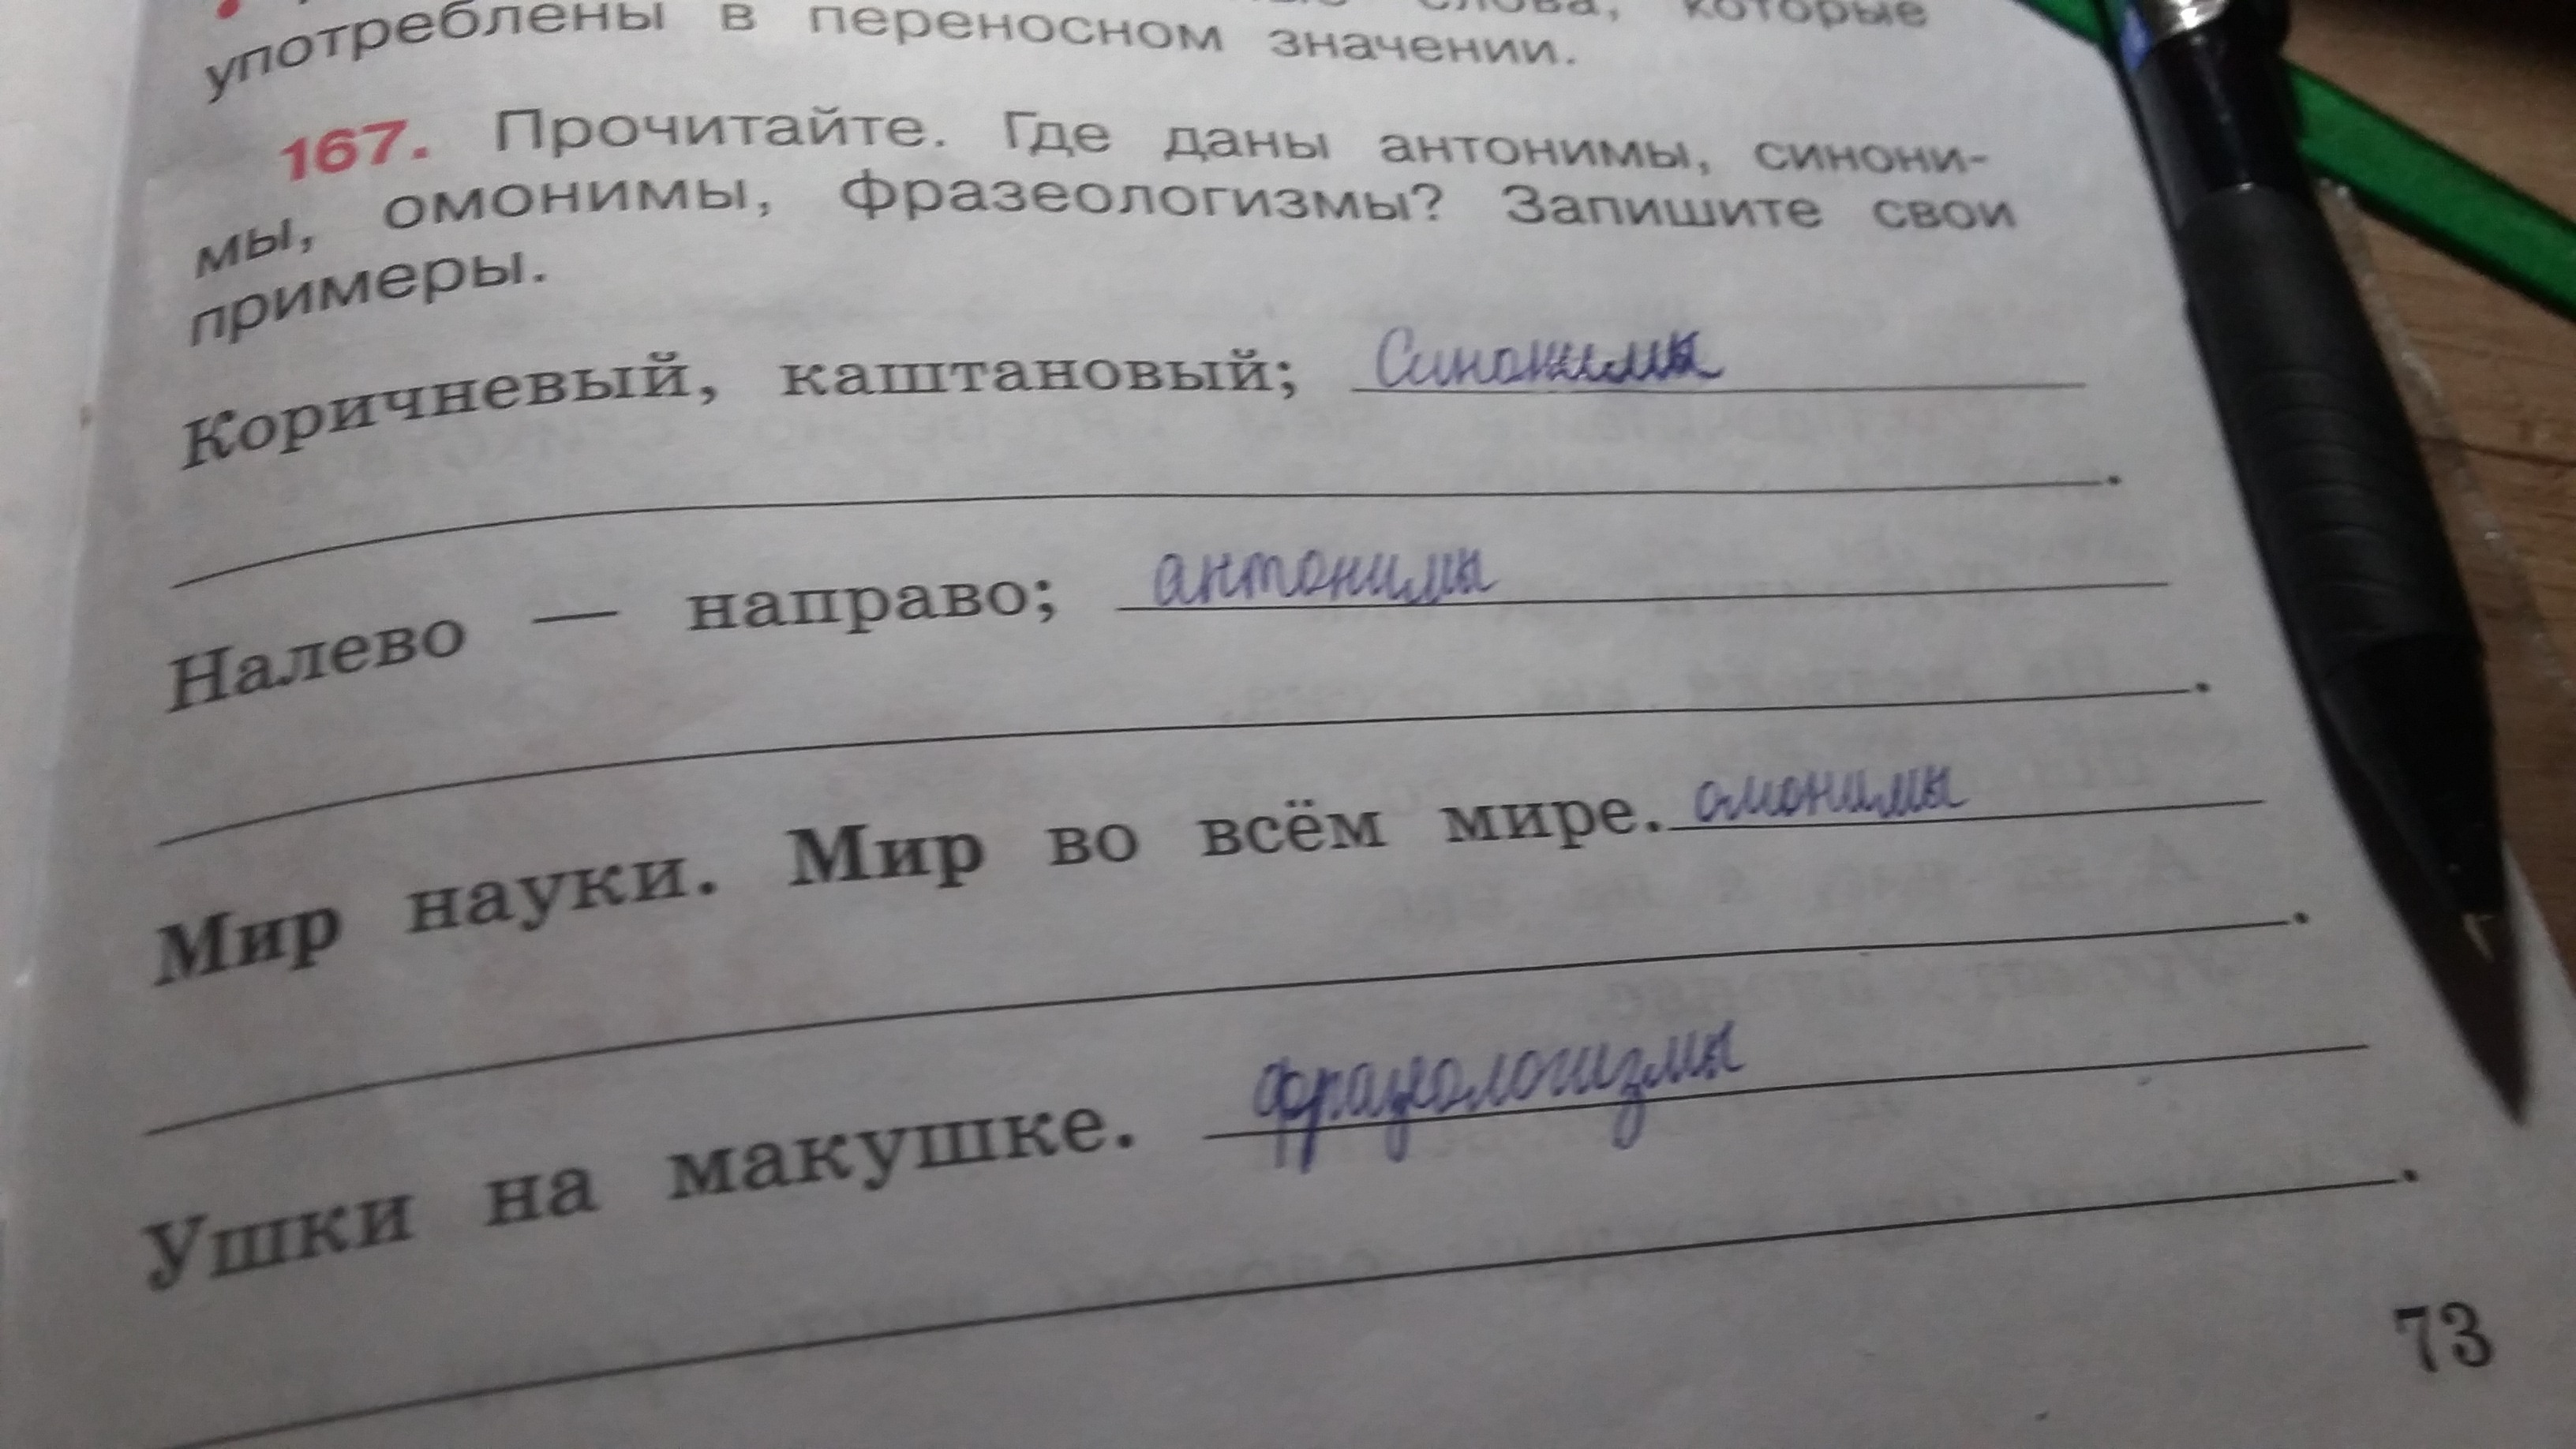 слова, которые
употреблены в переносном значении.
167. Прочитайте. Где даны антонимы, синони-
мы, омонимы, фразеологизмы? Запишите свои
примеры.
Коричневый, каштановый; Синонимы
.
Налево — направо; антонимы
.
Мир науки. Мир во всём мире. омонимы
.
Ушки на макушке. фразеологизмы
.
73